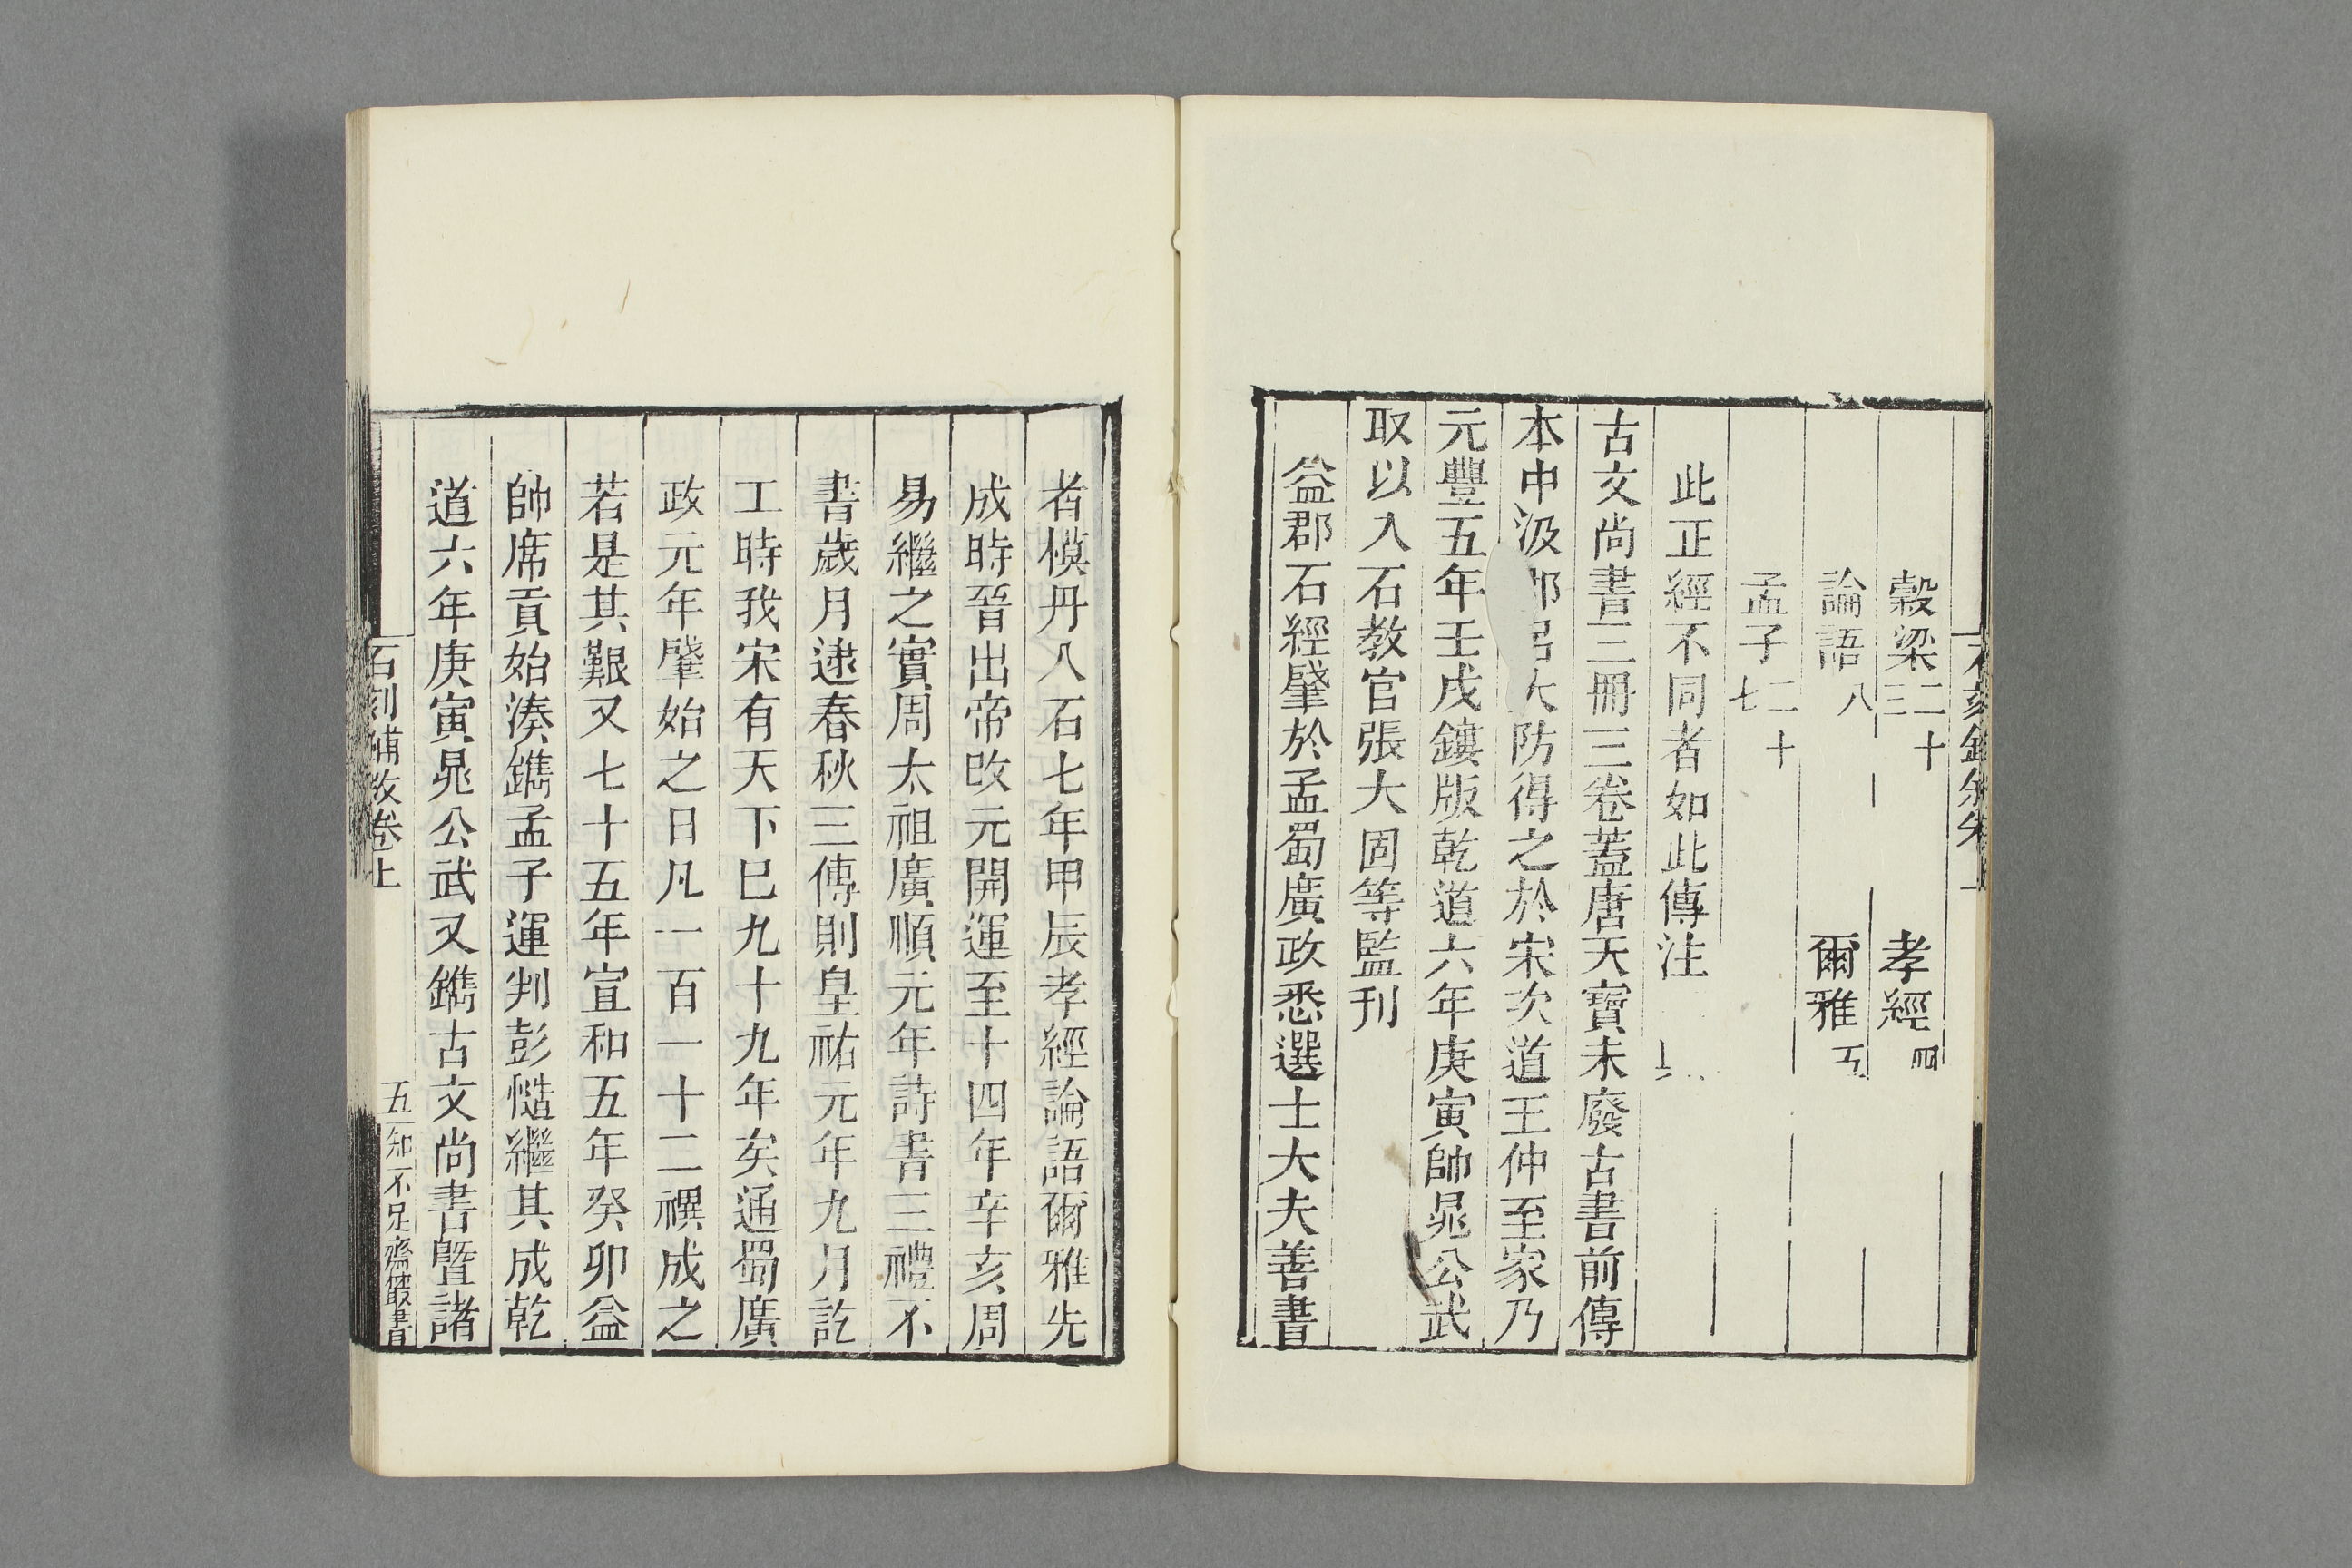 穀梁二十三 孝經四
論語八 爾雅五
孟子二十七
此正經不同者如此傳注
古文尚書三冊三卷蓋唐天寶未廢古書前傳
本中汲 大防得之於宋次道王仲至家乃
元豐五年壬戌鏤版乾道六年庚寅帥晁公武
取以入石教官張大固等監刊
益郡石經肇於孟蜀廣政悉選士大夫善書
者模丹入石七年甲辰孝經論語爾雅先
成時晉出帝改元開運至十四年辛亥周
易繼之實周太祖廣順元年詩書三禮不
書歲月逮春秋三傳則皇祐元年九月訖
工時我宋有天下已九十九年矣通蜀廣
政元年肇始之日凡一百一十二禩成之
若是其艱又七十五年宣和五年癸卯益
帥席貢始湊鐫孟子運判彭慥繼其成乾
道六年庚寅晁公武又鐫古文尚書曁諸
石刻鋪敘卷上 五 知不足齋叢書